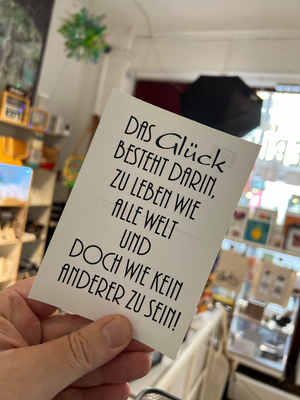 DAS Glück
BESTEHT DARIN,
ZU LEBEN WIE
ALLE WELT
UND
DOCH WIE KEIN
ANDERER ZU SEIN!